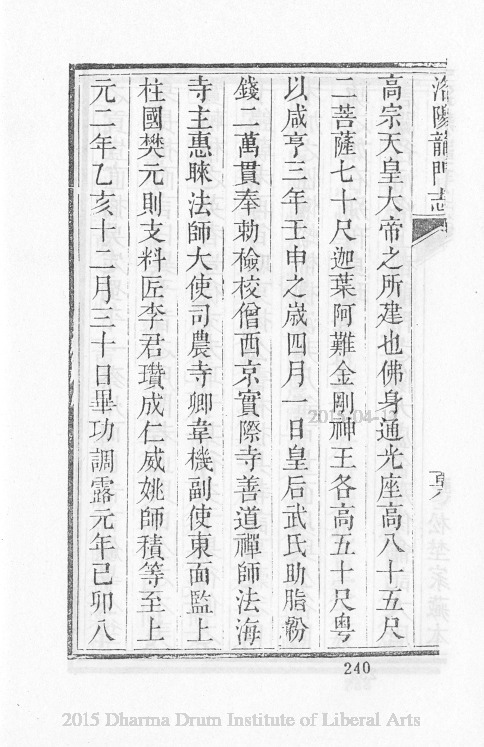 洛陽龍門志
高宗天皇大帝之所建也佛身通光座高八十五尺
二菩薩七十尺迦葉阿難金剛神王各高五十尺粤
以咸亨三年壬申之歲四月一日皇后武氏助脂粉
錢二萬貫奉勅檢校僧西京實際寺善道禪師法海
寺主惠暕法師大使司農寺卿韋機副使東面監上
柱國樊元則支料匠李君瓚成仁威姚師積等至上
元二年乙亥十二月三十日畢功調露元年己卯八
240
2015 Dharma Drum Institute of Liberal Arts